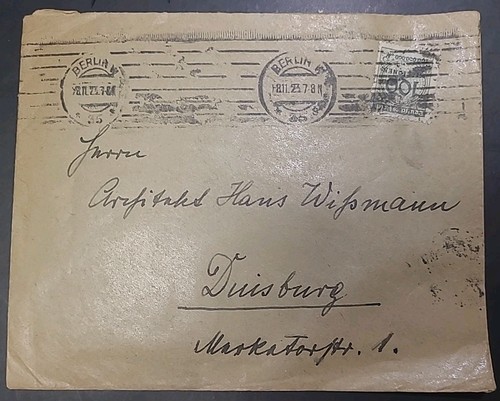 BERLIN W
8.11.23.7-8N
* 35 *
BERLIN W
8.11.23.7-8N
* 35 *
100
Herrn
Architekt Hans Wißmann
Duisburg
Merkatorstr. 1.